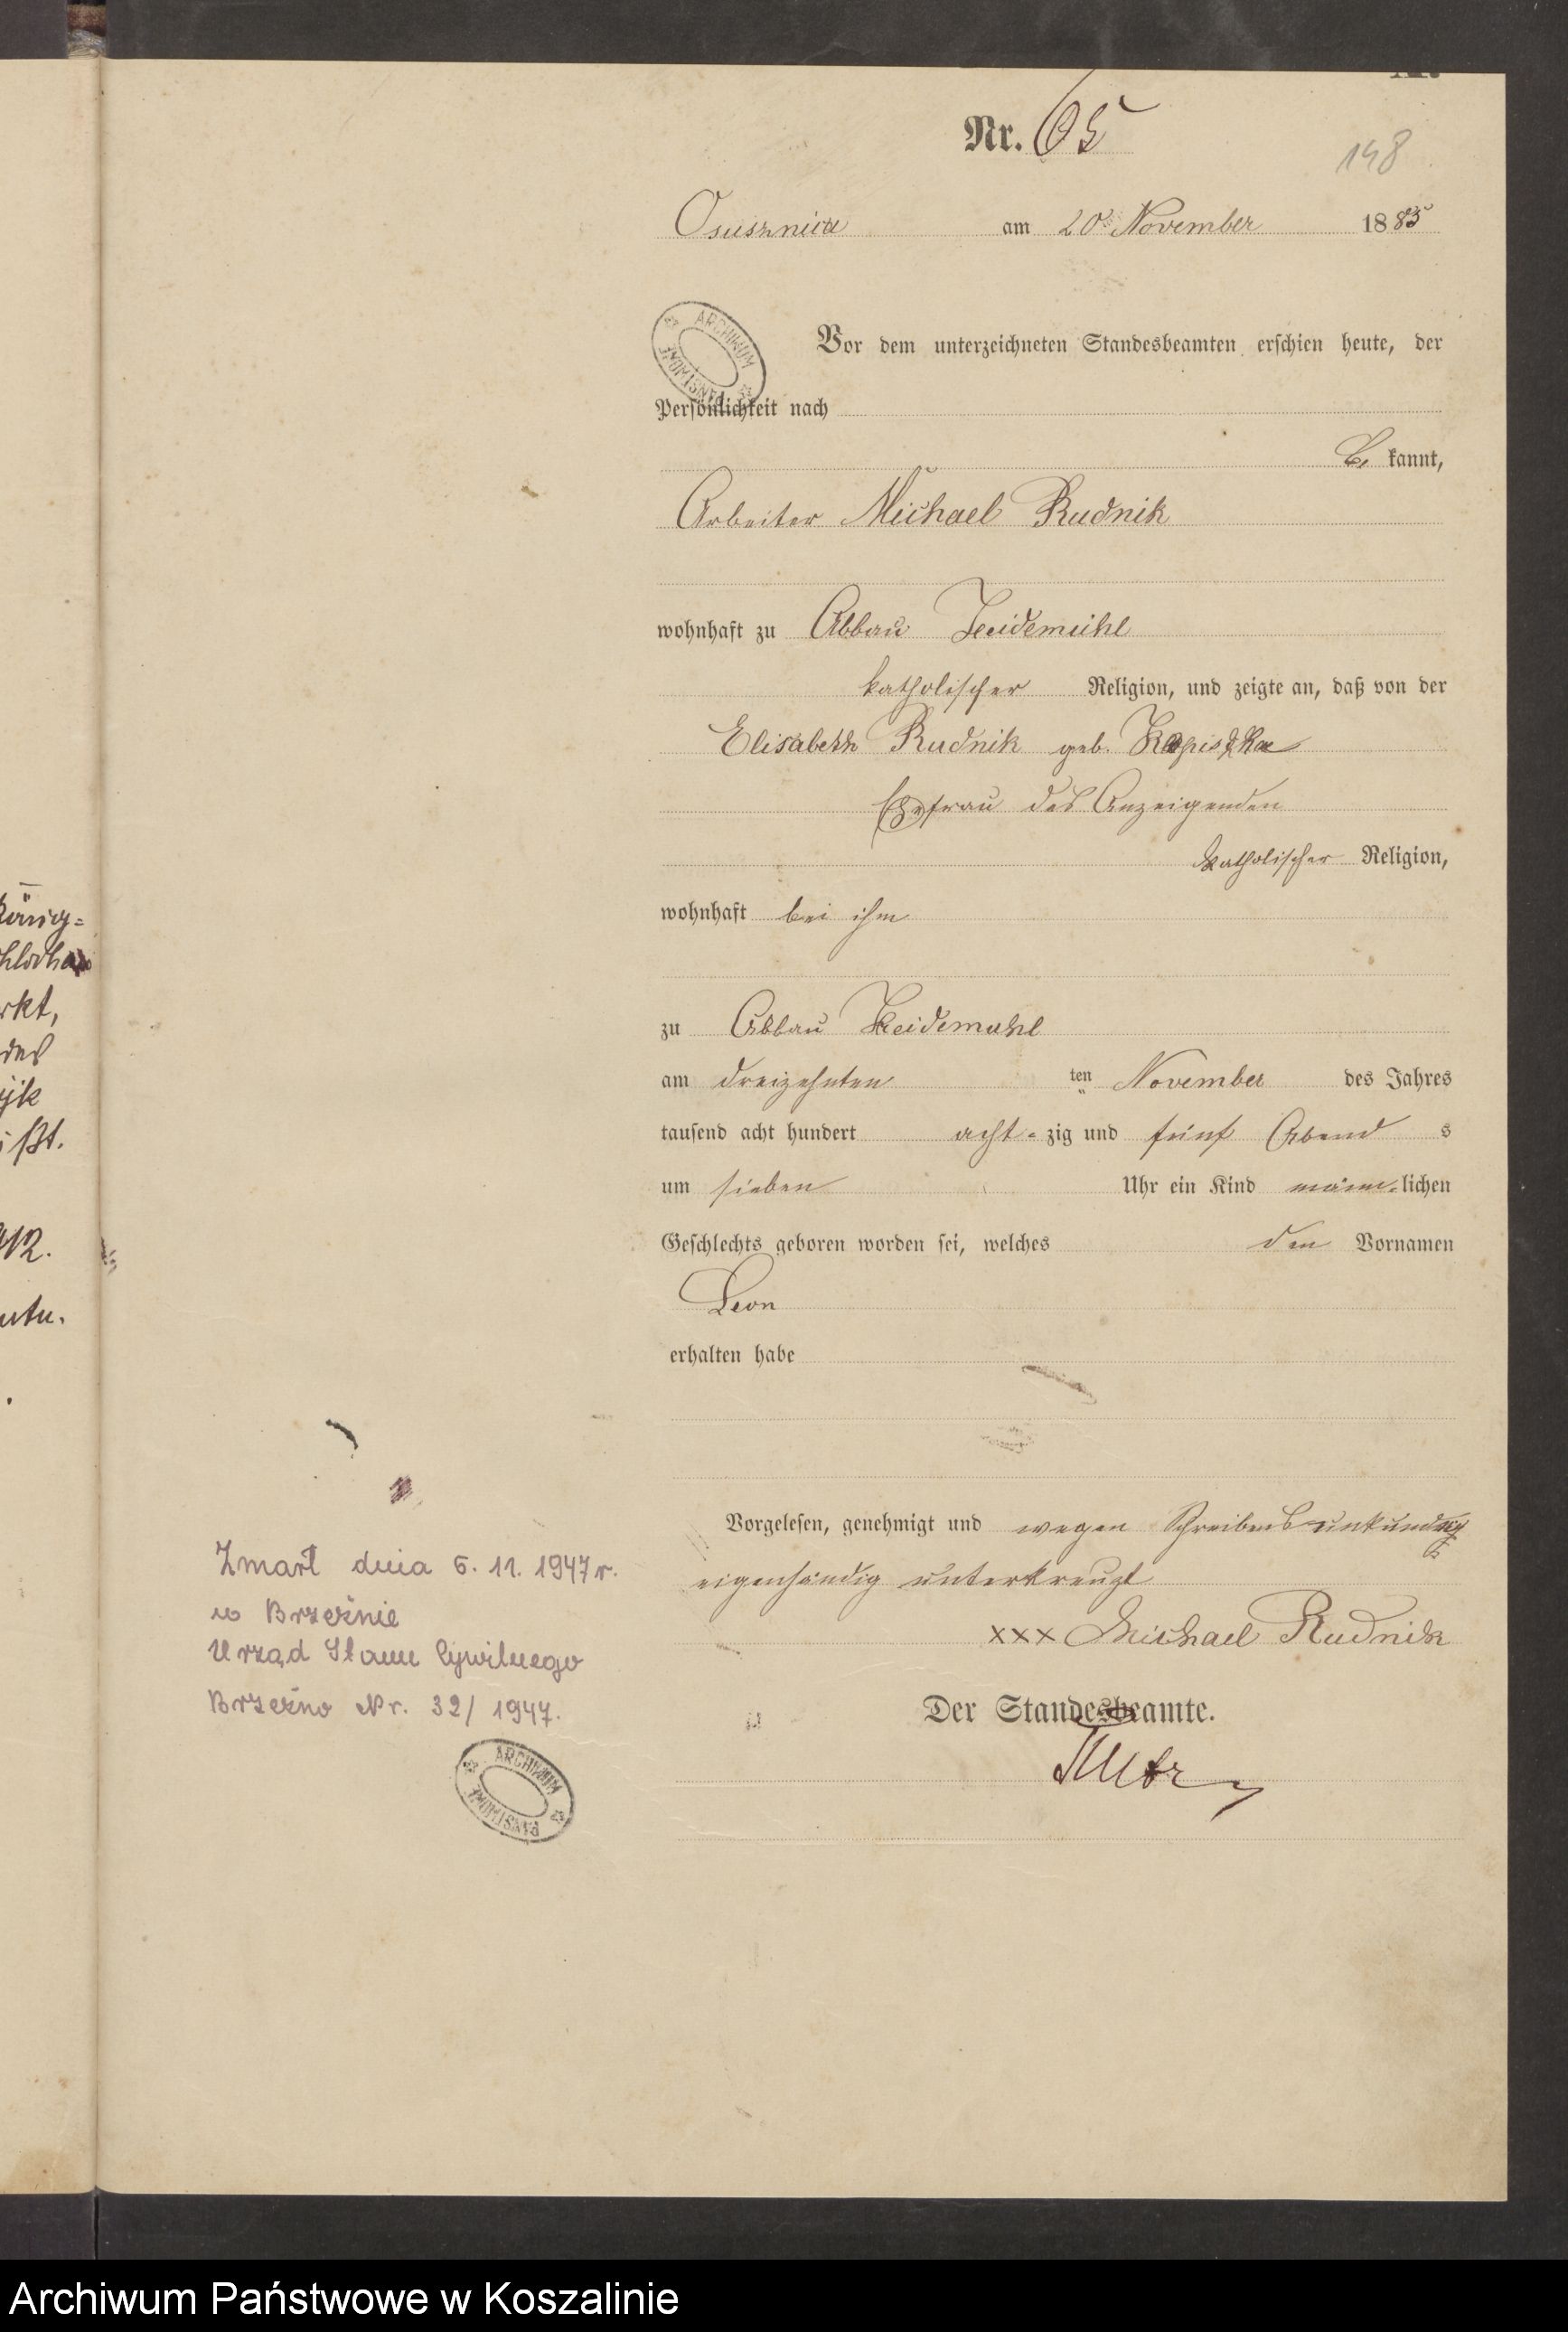 Nr. 65
148
Osusznica am 20. November 1885
ARCHIWUM PAŃSTWOWE
Vor dem unterzeichneten Standesbeamten erschien heute, der
Persönlichkeit nach
be kannt,
Arbeiter Michael Rudnik
wohnhaft zu Abbau Heidemühl
katholischer Religion, und zeigte an, daß von der
Elisabeth Rudnik geb.
Ehefrau des Anzeigenden
katholischer Religion,
wohnhaft bei ihm
zu Abbau Heidemühl
am dreizehnten ten November des Jahres
tausend acht hundert acht-zig und fünf Abend s
um sieben Uhr ein Kind männ-lichen
Geschlechts geboren worden sei, welches den Vornamen
Leon
erhalten habe
Vorgelesen, genehmigt und wegen Schreibensunkundig
eigenhändig unterkreuzt
xxx Michael Rudnik
Der Standesbeamte.
Zmarł dnia 6. 11. 1947 r.
w Brzeźnie
Urząd Stanu Cywilnego
Brzeźno Nr. 32/1947.
ARCHIWUM PAŃSTWOWE
des
412.
Archiwum Państwowe w Koszalinie